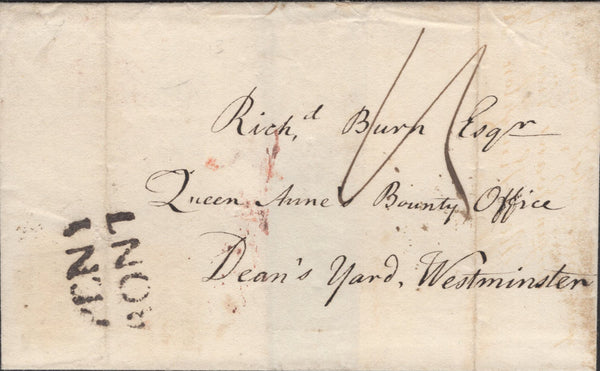 Rich,d Burn Esqr
Queen Anne's Bounty Office
Dean's Yard, Westminster